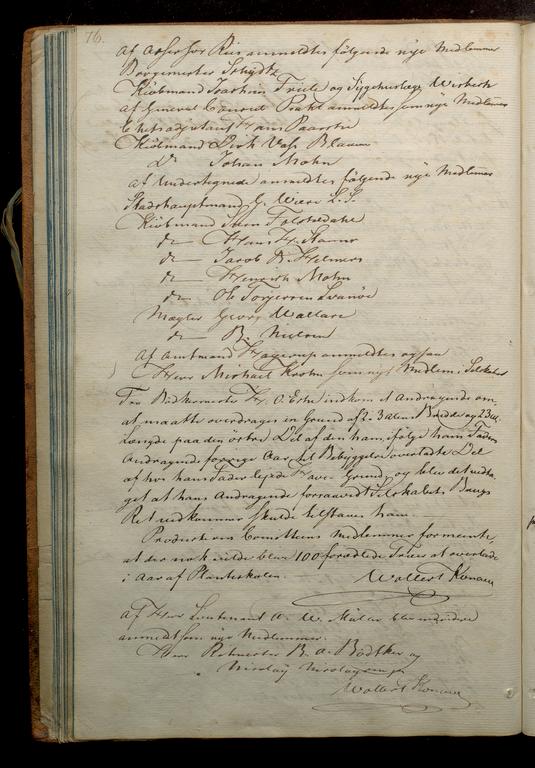 76.
af Assessor Riis anmeldtes følgende nye Medlemmer
Borgemester Schydtz
Kiøbmand Joachim Friele og Sygehuuslæge Wisbech
af General Consul Prahl anmeldtes som nye Medlemmer
Kiøbmand Dirk Vos Blaauw
Do Johan Mohn
af Undertegnede anmeldtes følgende nye Medlemmer
Stadshauptmand G.
Kiøbmand
do Hans H.
do Jacob R. Helmers
do Henrich Mohn
do Ole Torjersen Svanøe
Mægler Georg Wallace
do B. Nielsen
af Amtmand Hagerup anmeldtes ogsaa
Herr Michael Krohn som nyt Medlem i Selskabet
Fra Bødkermester H. O. indkom et Andragende om,
at maatte overdrages en Grund af 2-3 Alens Bredde og 23 Al.
Længde paa den østre Deel af den ham, ifølge hans Faders
Andragende forrige Aar, til Bebyggelse overladte Deel
af hos hans Fader leiede Have-Grund, og blev det vedta-
get at hans Andragende forsaavidt Selskabets Brugs
Ret vedkommer skulde tilstaaes ham.
Productions Comitteens Medlemmer formeente,
at der nok vilde blive 100 forædlede Træer at overlade
i Aar af Planteskolen.
Wollert Konow
Af Herr Lieutenant A. W. Müller bleve
anmeldt som nye Medlemmer.
Herr B. A. Bödtker og
Nicolay Nicolaysen jr
Wollert Konow